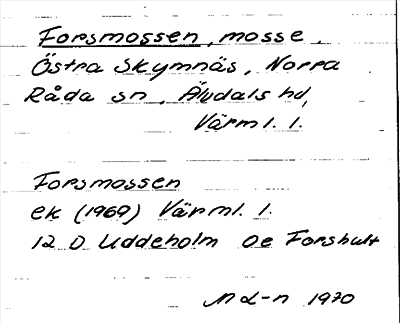 Forsmossen, mosse,
Östra Skymnäs, Norra
Råda sn, Älvdals hd,
Värml. l.
Forsmossen
ek (1969) Värml. l.
12 D Uddeholm 0e Forshult
M L-n 1970